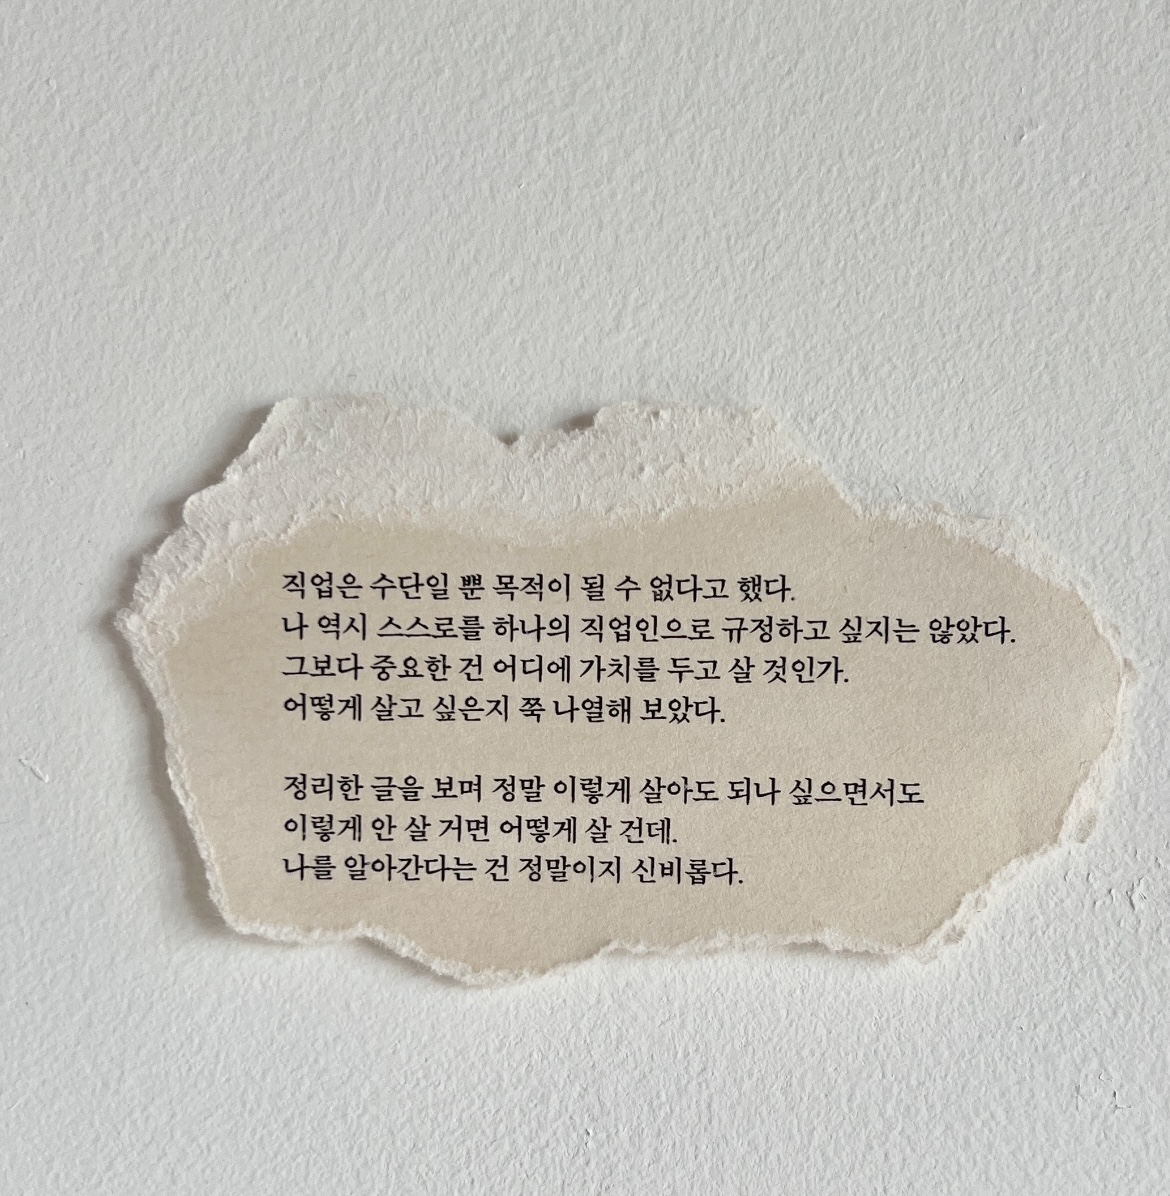 직업은 수단일 뿐 목적이 될 수 없다고 했다.
나 역시 스스로를 하나의 직업인으로 규정하고 싶지는 않았다.
그보다 중요한 건 어디에 가치를 두고 살 것인가.
어떻게 살고 싶은지 쭉 나열해 보았다.
정리한 글을 보며 정말 이렇게 살아도 되나 싶으면서도
이렇게 안 살 거면 어떻게 살 건데.
나를 알아간다는 건 정말이지 신비롭다.